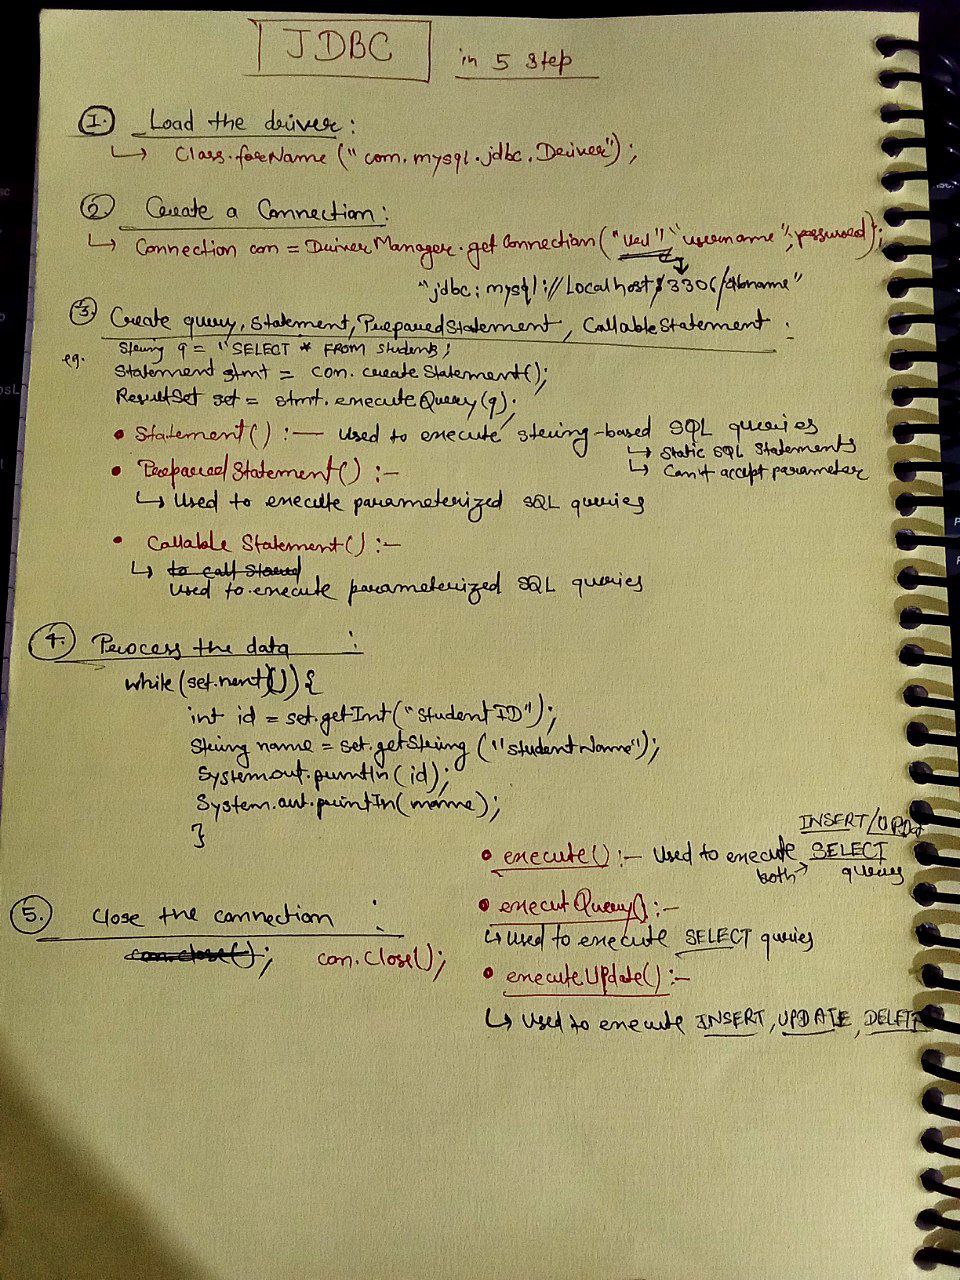 JDBC in 5 Step
1. Load the driver :
↳ Class.forName ("com.mysql.jdbc.Driver");
2. Create a Connection :
↳ Connection con = DriverManager.getConnection ("url", "username", password);
"jdbc:mysql://Localhost:3306/dbname"
3. Create query, Statement, PreparedStatement, CallableStatement :
eg. String q = "SELECT * FROM students;
Statement stmt = con.createStatement();
ResultSet set = stmt.executeQuery(q);
• Statement() :— Used to execute string-based SQL queries
↳ Static SQL Statements
↳ Can't accept parameter
• PreparedStatement() :-
↳ Used to execute parameterized SQL queries
• Callable Statement() :-
↳ to call Stored
Used to execute parameterized SQL queries
4. Process the data :
while (set.next()) {
int id = set.getInt("student ID");
String name = set.getString ("studentName");
System.out.println(id);
System.out.println(name);
}
INSERT/UPDAT
• execute() :- Used to execute SELECT
both → queries
• executQuery() :-
↳ Used to execute SELECT queries
• executeUpdate() :-
↳ Used to execute INSERT, UPDATE, DELETE
5. Close the connection :
con.close(); con.close();